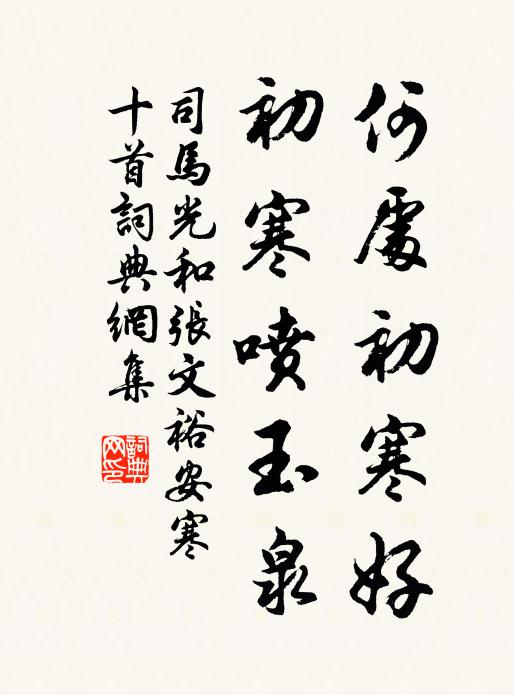 何處初寒好
初寒噴玉泉
司馬光和張文裕安寒
十首詞典網集
詞典
网印